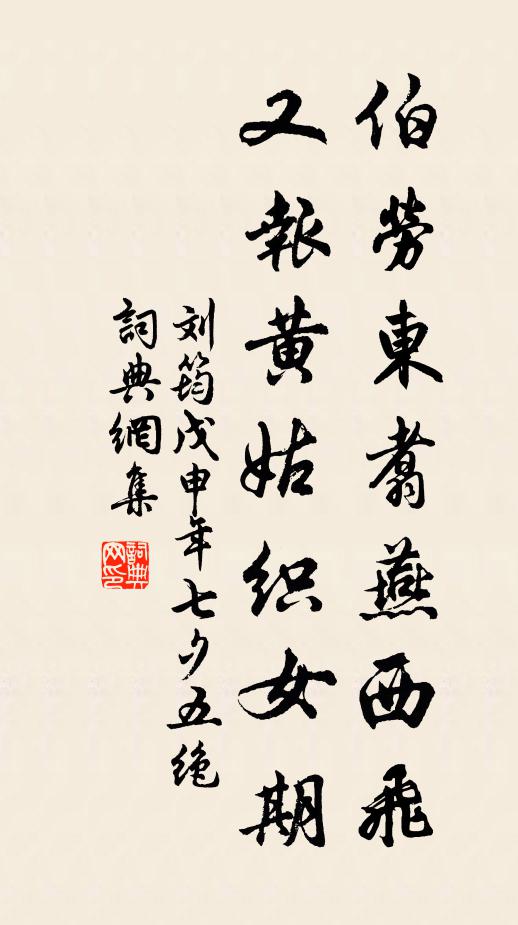 伯勞東翥燕西飛
又報黄姑织女期
刘筠戊申年七夕五绝
詞典網集
詞典网印